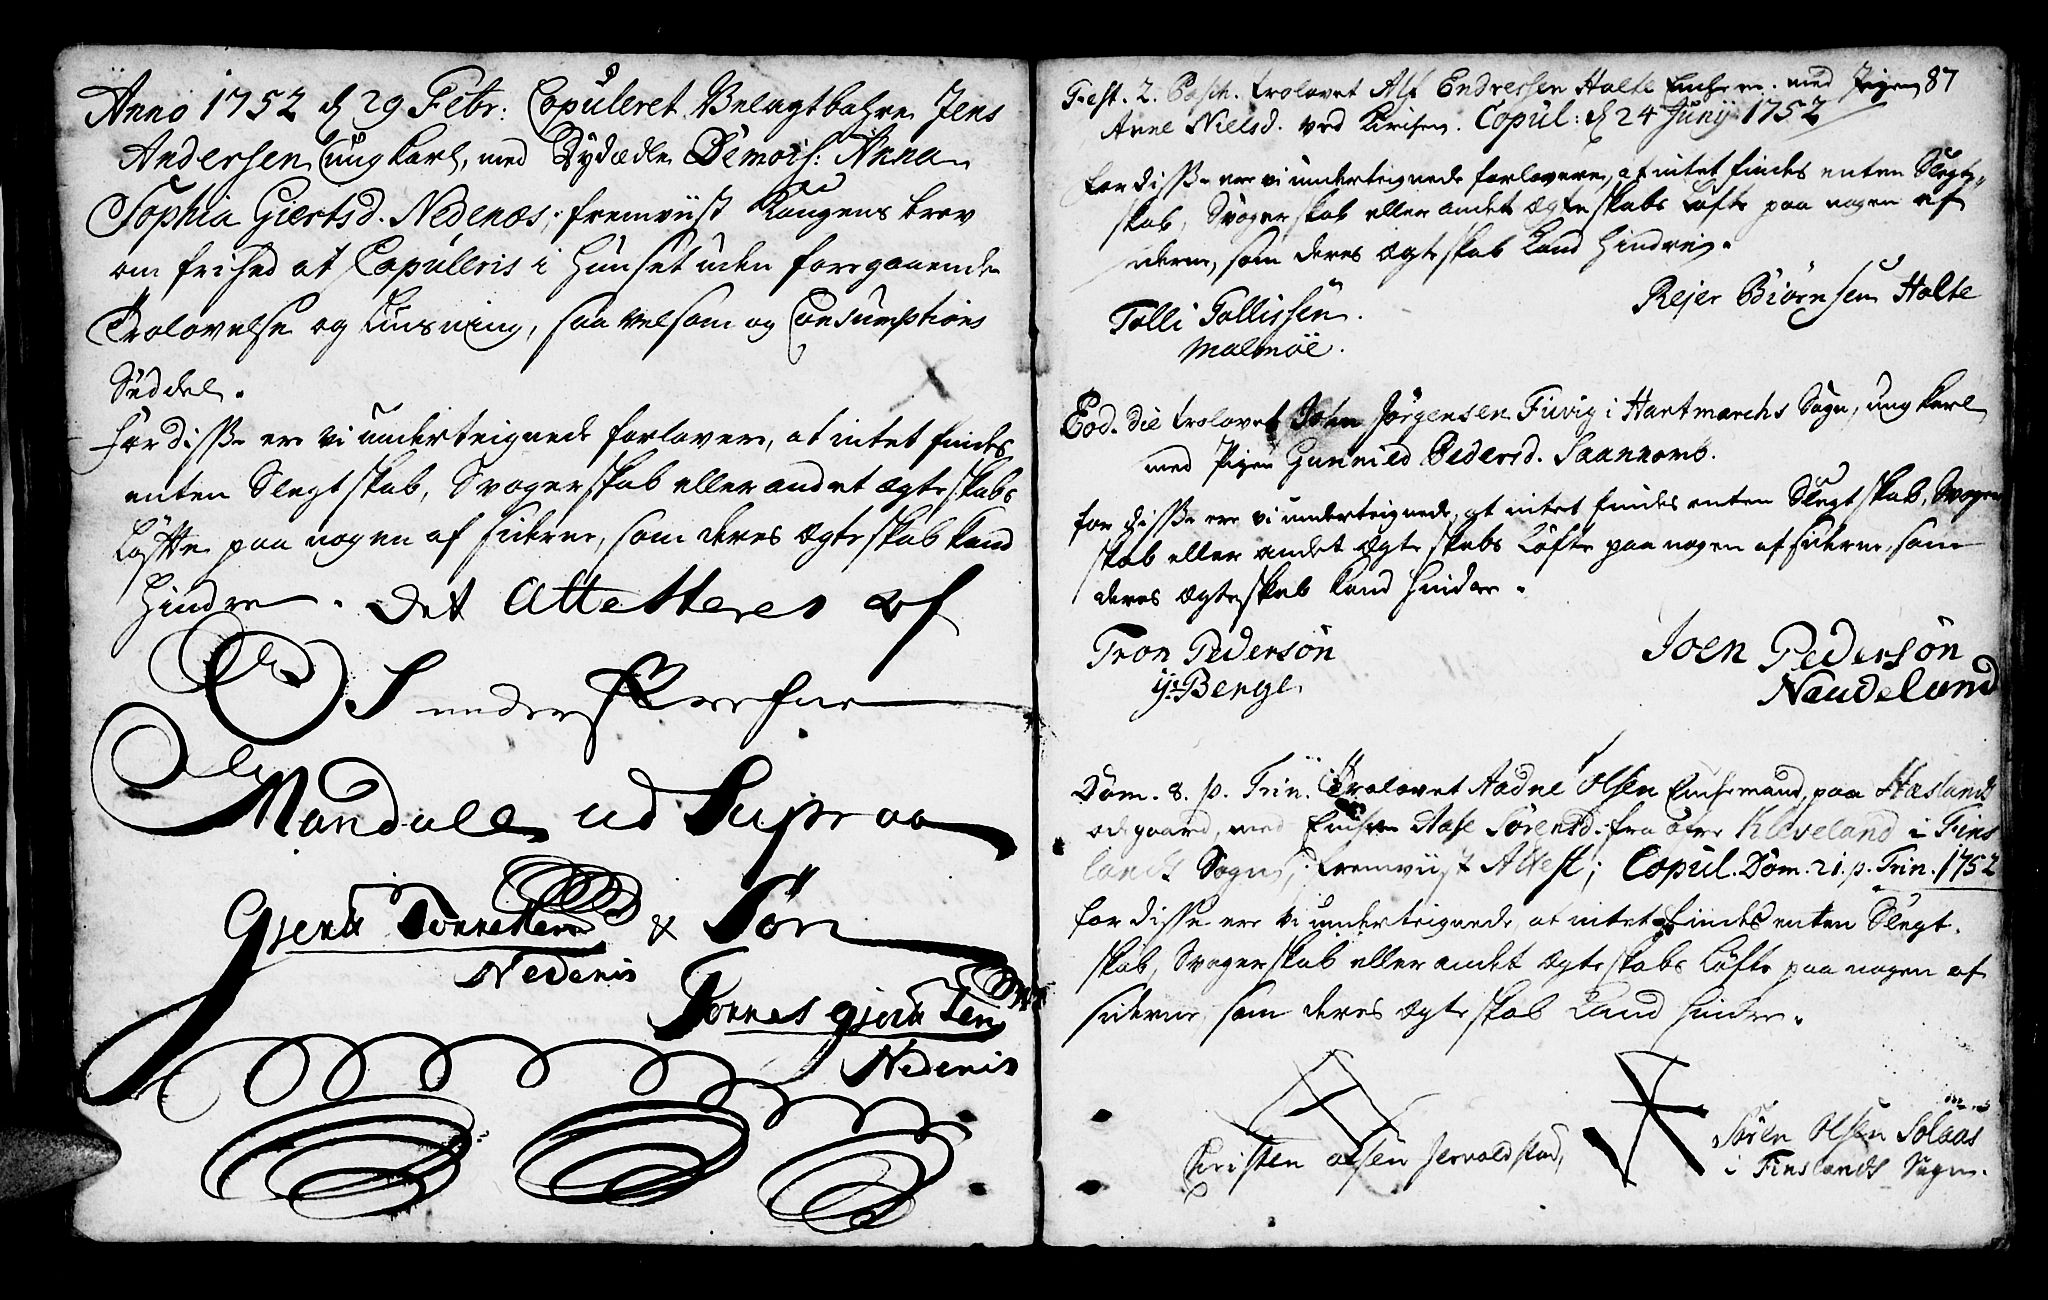 Anno 1752 d 29 Febr: Copuleret Velagtbahre Jens
Andersen Ung Karl, med Dydædle Demois: Anna
Sophia Giertsd. Nedenæs, fremviist Kongens brev
om frihed at Copuleris i Huuset uden foregaaende
Trolovelse og Liusning, saa velsom og Consumptions
Seddel.
For disse ere vi underteignede forlovere, at intet findes
enten Slegtskab, Svogerskab eller andet ægteskabs
Løfte paa nogen af siderne, som deres Ægteskab kand
hindre. Det Attesteres af
Mandall ud Supra
Gjerdt Tønnessen & Søn
Nedenis
Tønnes Gjertsen
Nedenis
87
Fest. 2. Pasch. trolovet Alf Endressen Holte Enkem. med Pigen
Anne Nielsd. ved Kirken. Copul: d 24 Junij 1752
For disse ere vi underteignede forlovere, at intet findes enten Slegt-
skab, Svogerskab eller andet Ægteskabs Løfte paa nogen af
siderne, som deres Ægteskab kand hindre.
Tolli Tollissen
Malmöe.
Rejer Biörnsen Holte
Eod. die trolovet John Jörgensen Fuvig i Hartmarchs Sogn, ung karl
med Pigen Gunnild Pedersd.
for disse ere vi underteignede, at intet findes enten Slegtskab, Svoger
skab eller andet Ægteskabs Løfte paa nogen af siderne, som
deres Ægteskab kand hindre.
Tron Pedersön
Berge
Joen Pedersön
Naudeland
Dom. 8. p. Trin. Trolovet Aadne Olsen Enkemand, paa Hæslands
ødegaard, med Enken Aase Sörensd. fra øvre Kleveland i Fins
lands Sogn, fremviist Attest; Copul. Dom. 21. p. Trin. 1752
for disse ere vi underteignede, at intet findes enten Slegt-
skab, Svogerskab eller andet Ægteskabs Løfte paa nogen af
siderne, som deres Ægteskab kand hindre.
Christen Olsen
Sören Olsen Solaas
i Finslands Sogn.